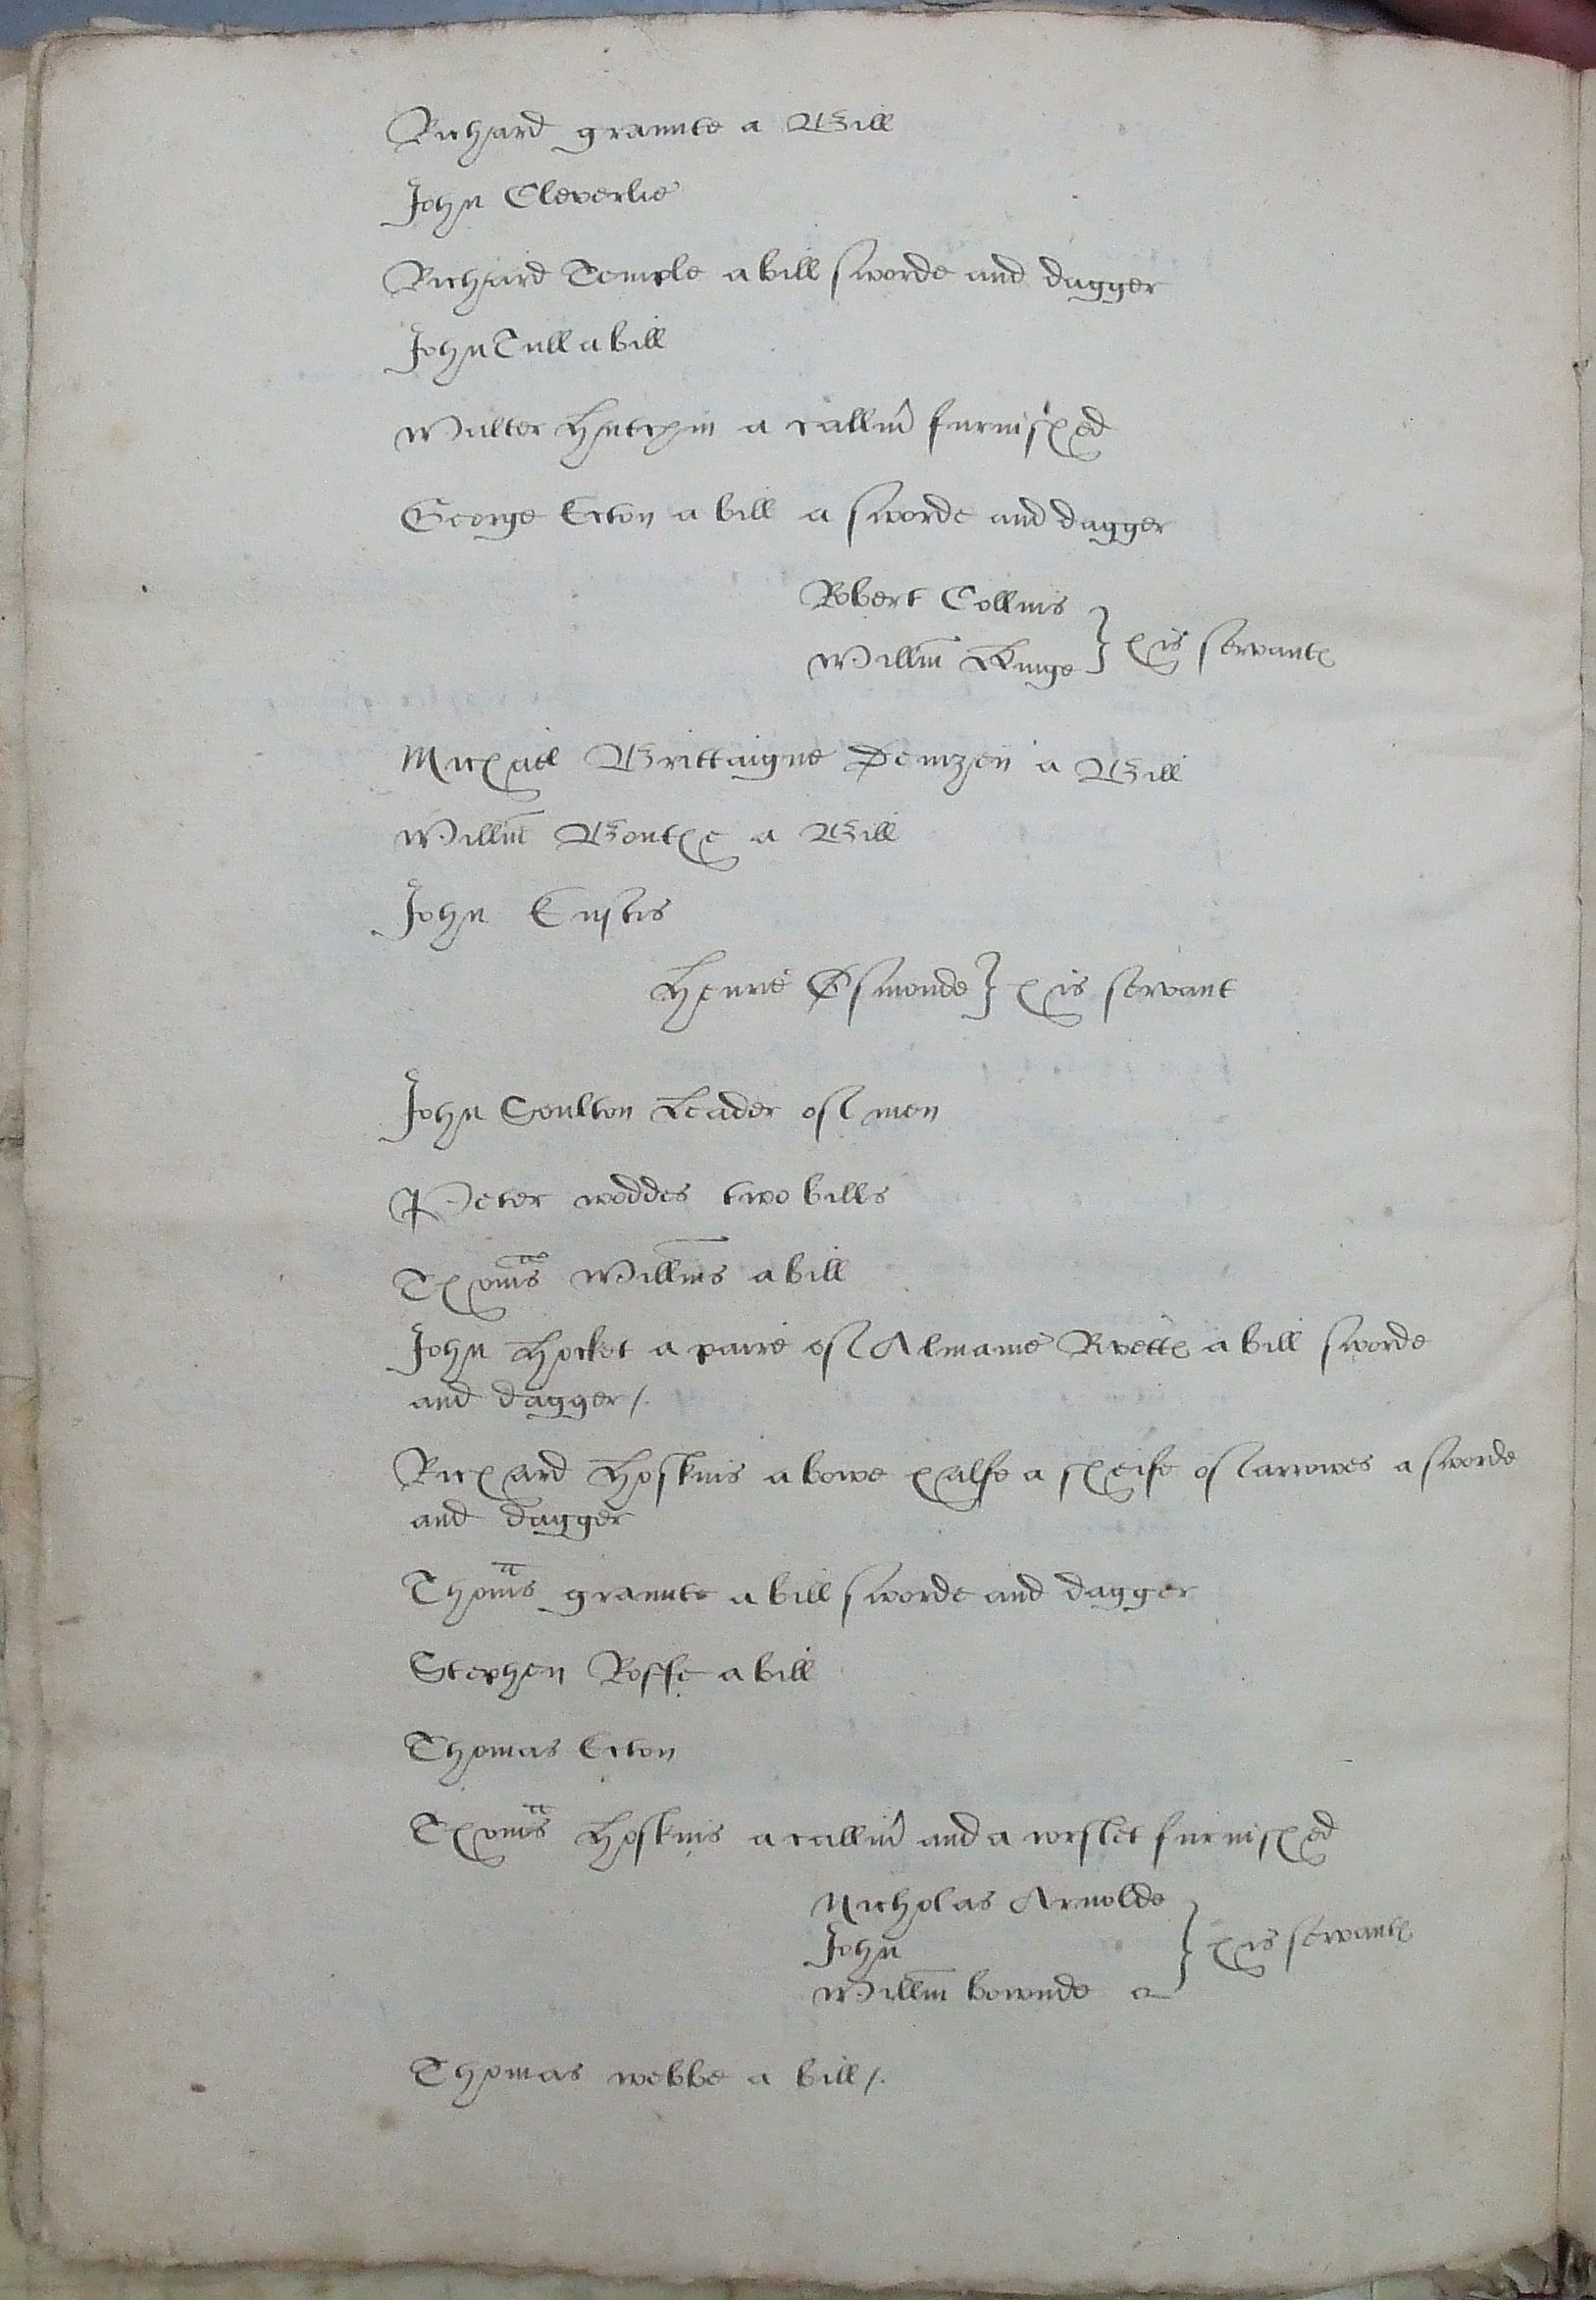 Richard graunte a Bill
John Cleverlie
Richard Temple a bill sworde and dagger
John Tull a bill
Walter Hutchin a callim̃ furnished
George Ecton a bill a sworde and dagger
Robert Collins
Willm̃ Kinge } his servantꝭ
Michaell Brittaigne Denizen a Bill
Willm̃ Bouthe a Bill
John Eustis
Henrie Osmonde } his servant
John Soulton Leader of men
Peter woddes two bills
Thom̃as Willm̃s a bill
John Hocket a paire of Almaine Rivettꝭ a bill sworde
and dagger /.
Richard Hoskins a bowe halfe a sheife of arrowes a sworde
and dagger
Thom̃as graunte a bill sworde and dagger
Stephen Roffe a bill
Thomas Ecton
Thom̃as Hoskins a callim̃ and a corslet furnished
Nicholas Arnolde
John } his servantꝭ
Willm̃ bownde a
Thomas webbe a bill /.